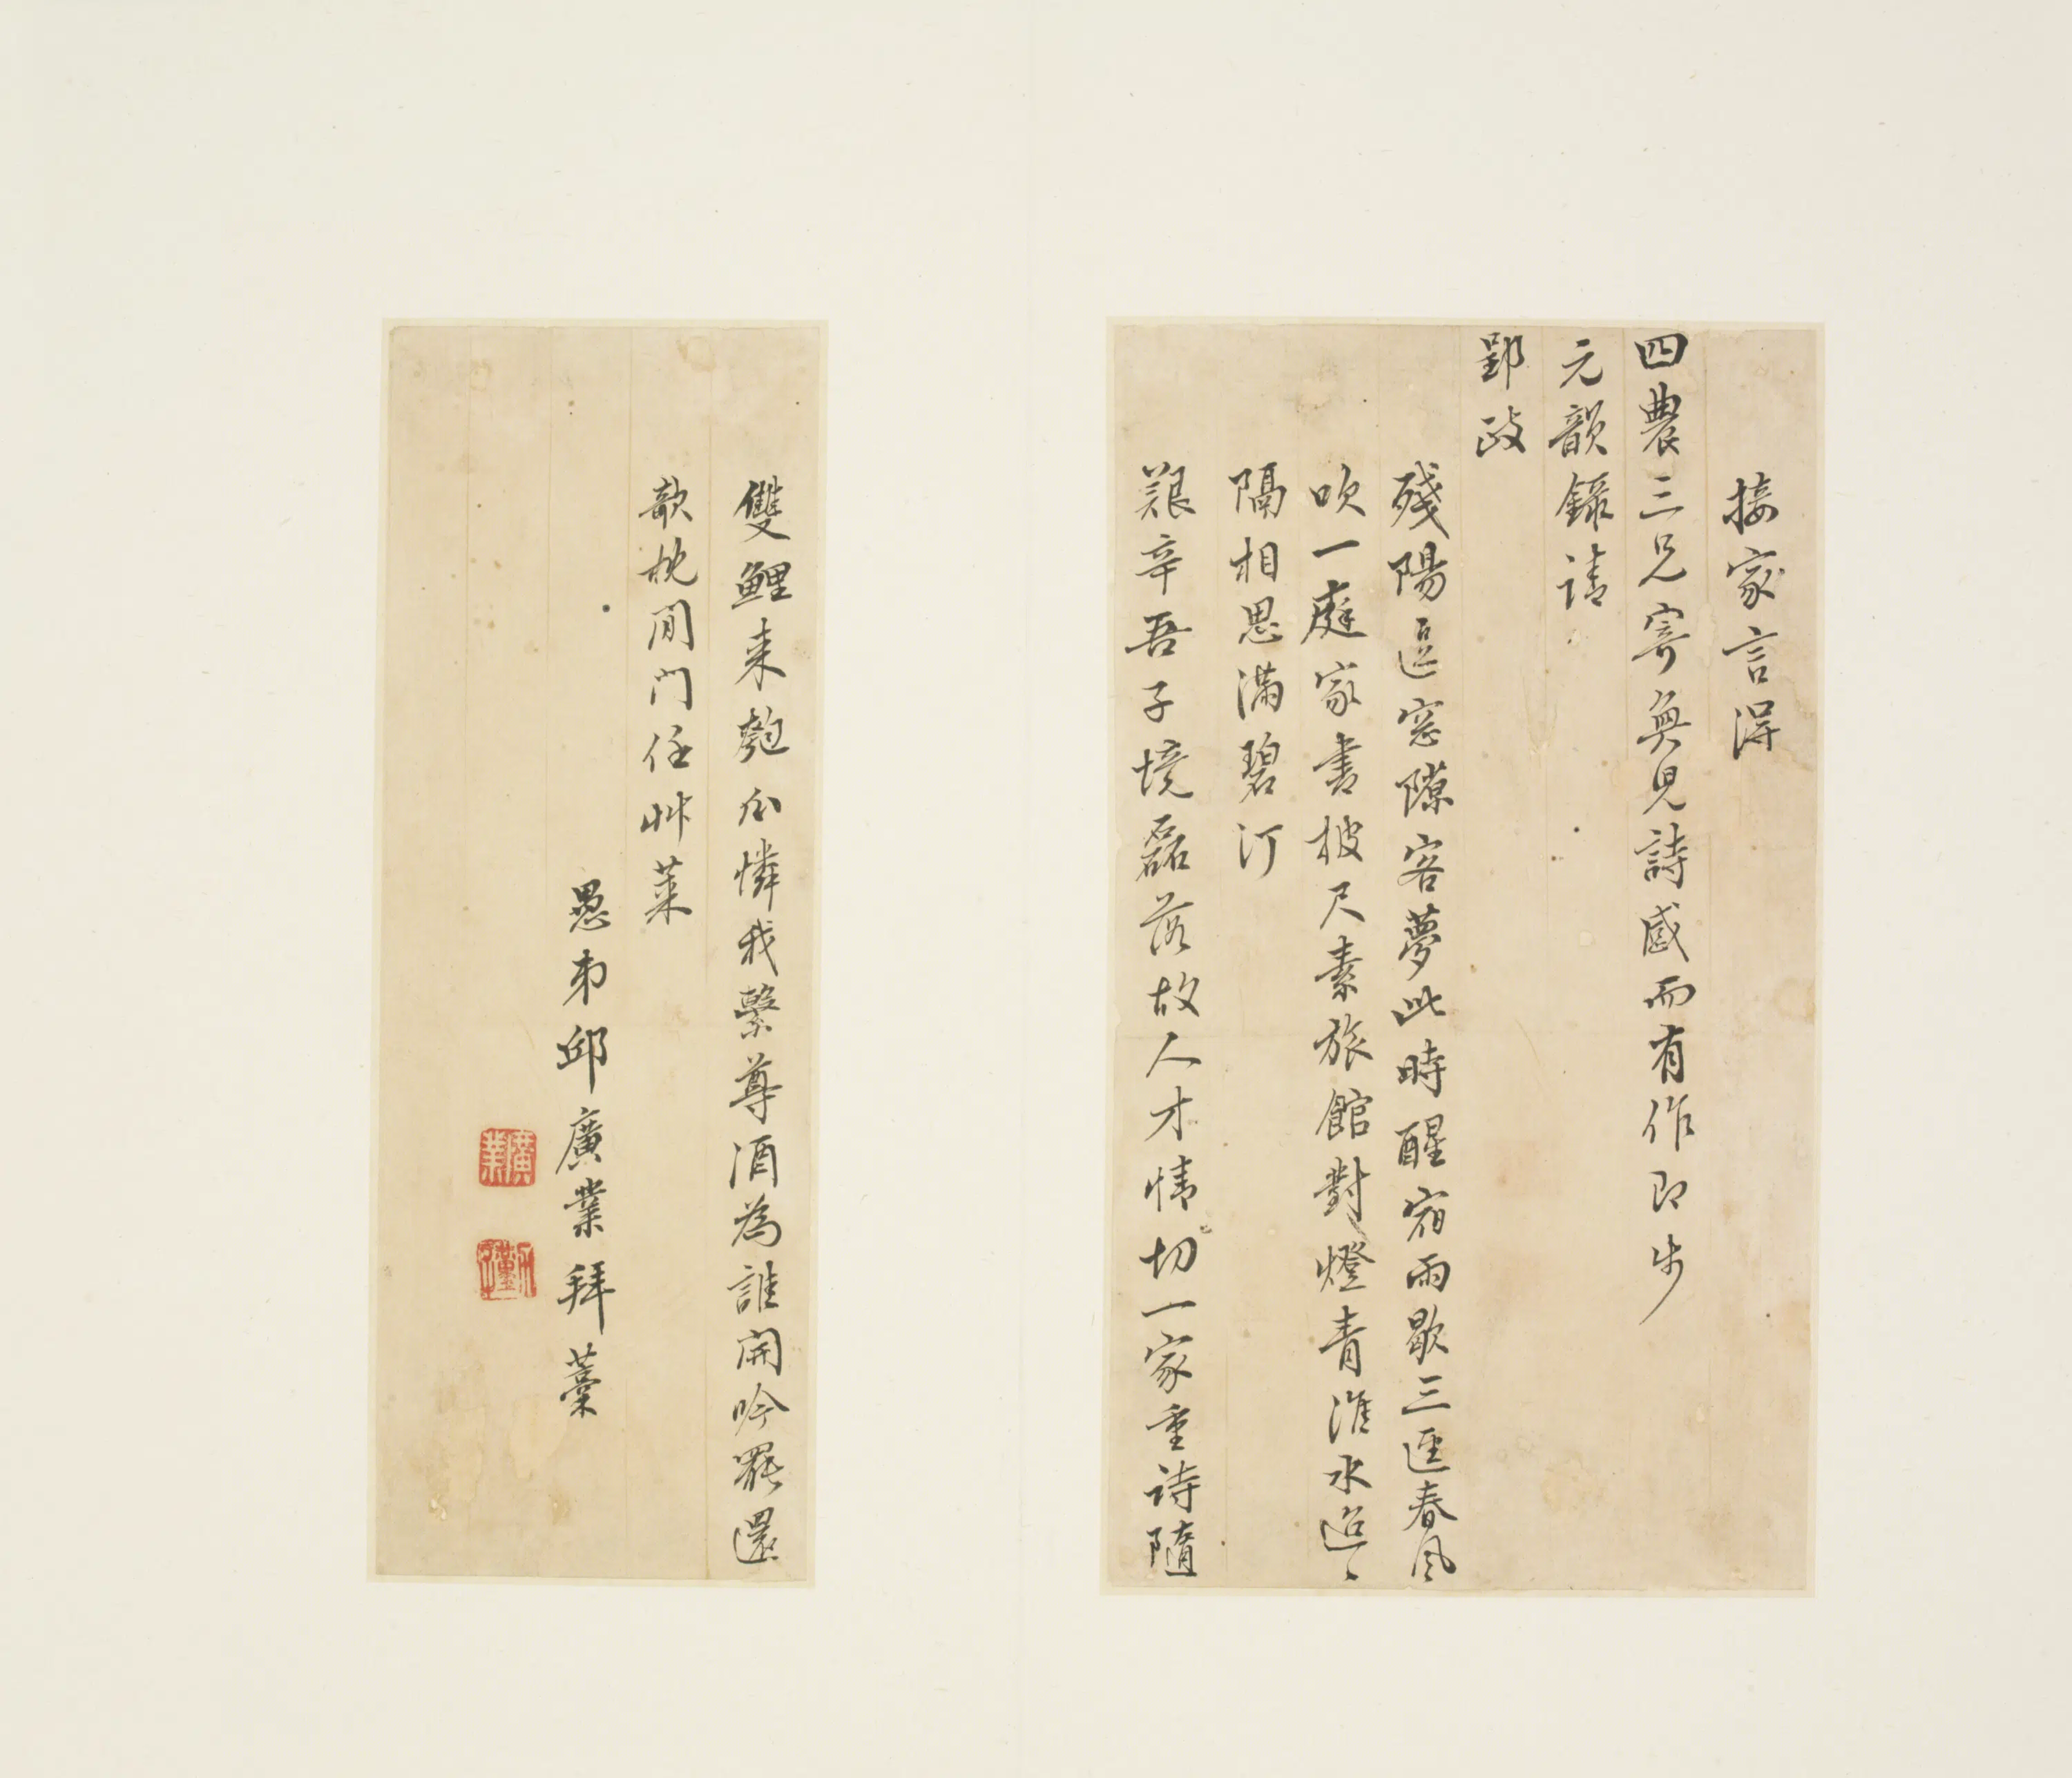 接家言得
四農三兄寄興見詩感而有作即步
元韻錄請
郢政
殘陽逗窓隙客夢此時醒宿雨歇三逕春風
吹一庭家書披尺素旅館對燈青淮水迢〻
隔相思滿碧汀
艱辛吾子境磊落故人才情切一家重詩隨
雙鯉来匏瓜憐我繫尊酒為誰開吟罷還
欹枕閒門任艸萊
愚弟邱廣業拜藁
廣業